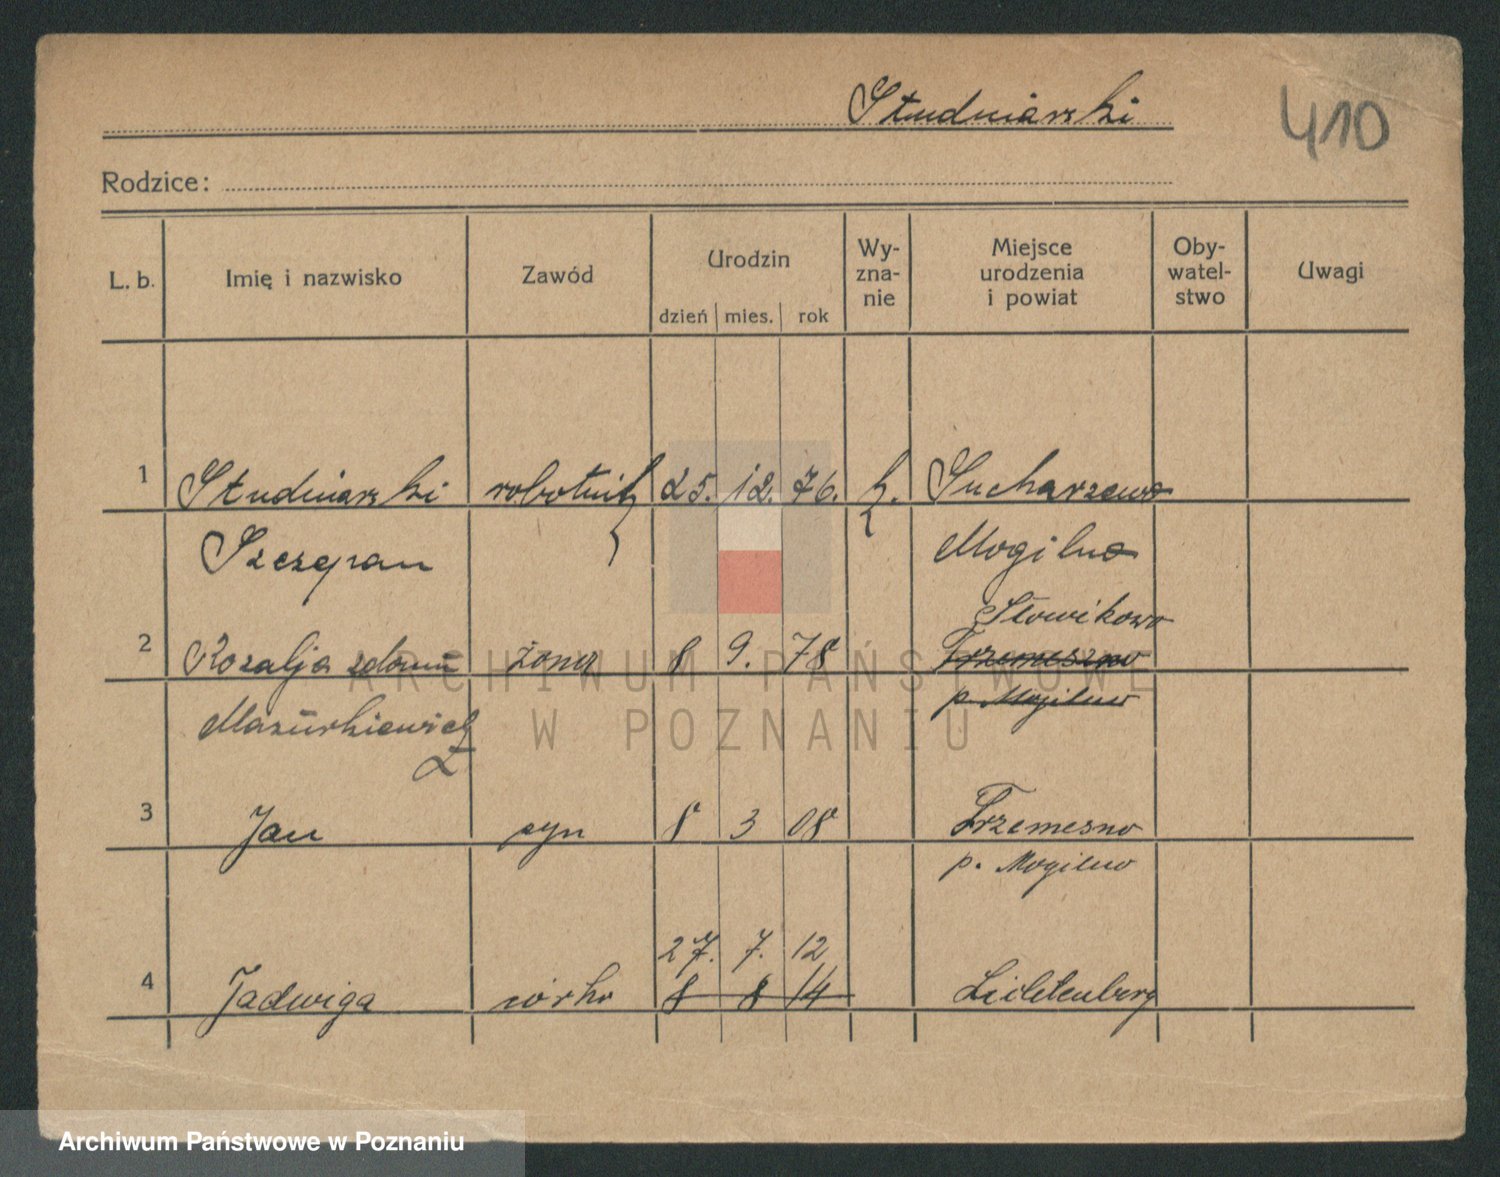 Studniarski
410
Rodzice:
L. b. Imię i nazwisko Zawód Urodzin dzień mies. rok Wy-zna-nie Miejsce urodzenia i powiat Oby-watel-stwo Uwagi
1 Studniarski robotnik 25. 12. 76. k. Sucharzewo
Szczepan Mogilno
Słowikowo
2 Rozalja z domu żona 8 9. 78 Trzemeszno
p. Mogilno
Mazurkiewicz
3 Jan syn 8 3 08 Trzemeszno
p. Mogilno
27. 7. 12
4 Jadwiga córka 8 8 14 Lichtenberg
ARCHIWUM PAŃSTWOWE
W POZNANIU
Archiwum Państwowe w Poznaniu